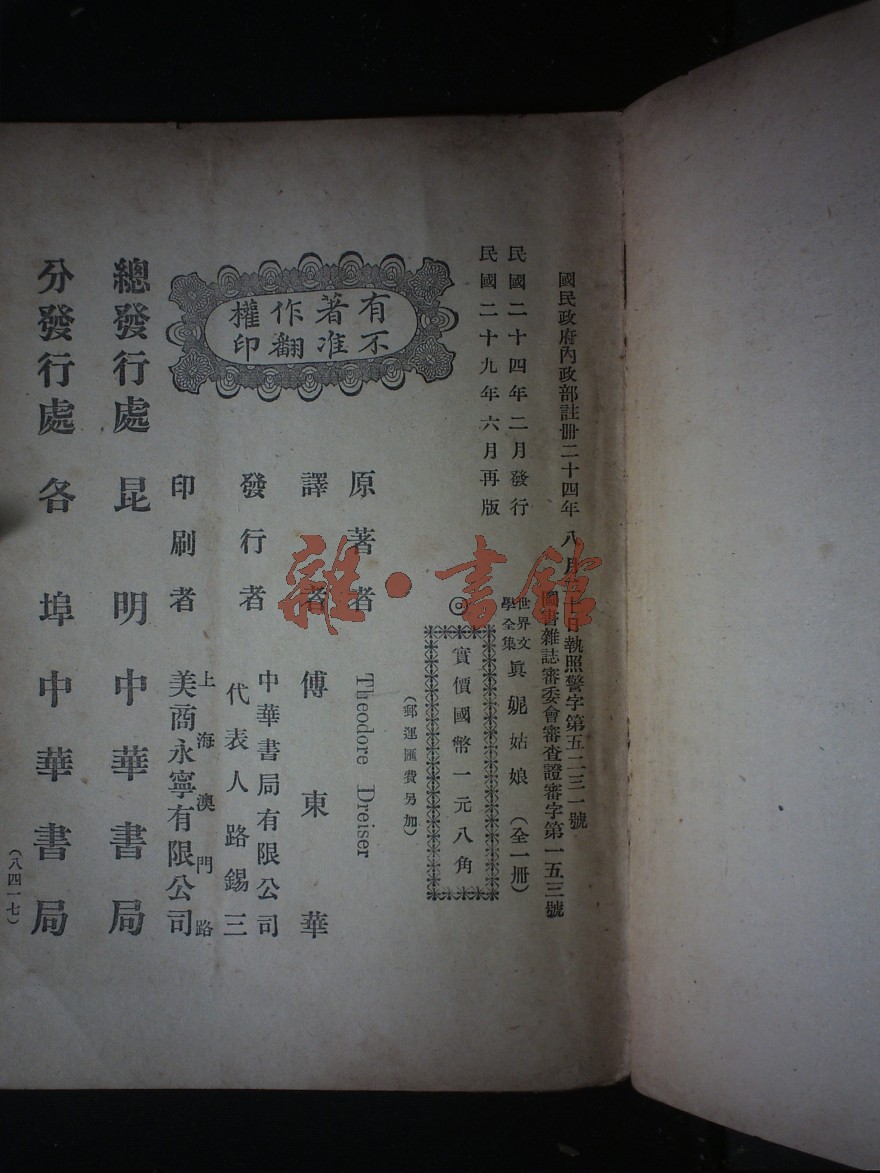 國民政府內政部註册二十四年八月 十日執照警字第五二三一號
圖書雜誌審委會審查證審字第一五三號
民國二十四年二月發行
民國二十九年六月再版
世界文學全集 眞妮姑娘（全一册）
實價國幣一元八角
（郵運匯費另加）
有著作權
不准翻印
原著者 Theodore Dreiser
譯者 傅東華
發行者 中華書局有限公司
代表人路錫三
印刷者 上海澳門路
美商永寧有限公司
總發行處 昆明中華書局
分發行處 各埠中華書局
（八四一七）
雜·書館